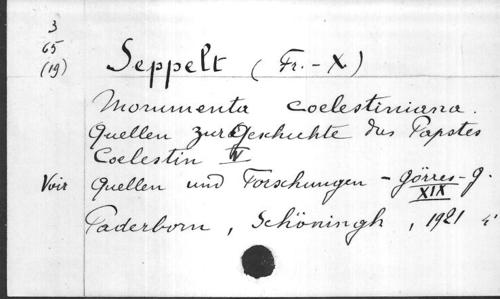 3
65
(19)
Seppelt (Fr.-X)
Monumenta coelestiniana.
Quellen zur Geschichte des Papstes
Coelestin V
Voir Quellen und Forschungen - Görres-G.
XIX
Paderborn, Schöningh, 1921 4°